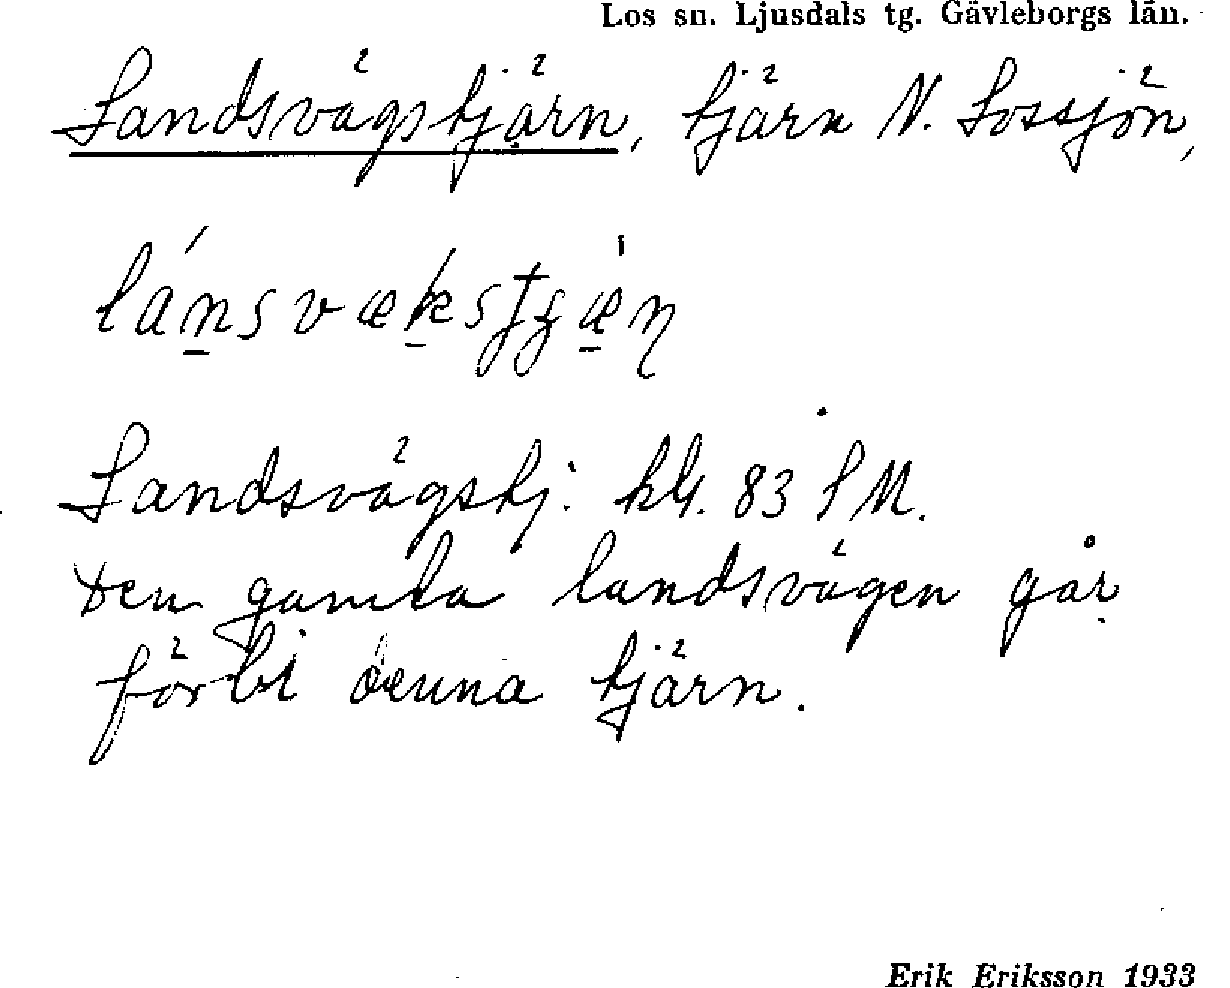 Los sn. Ljusdals tg. Gävleborgs län.
Landsvägstjärn, tjärn N. Lossjön,
Landsvägstj. kbl. 83 S M.
Den gamla landsvägen går
förbi denna tjärn.
Erik Eriksson 1933